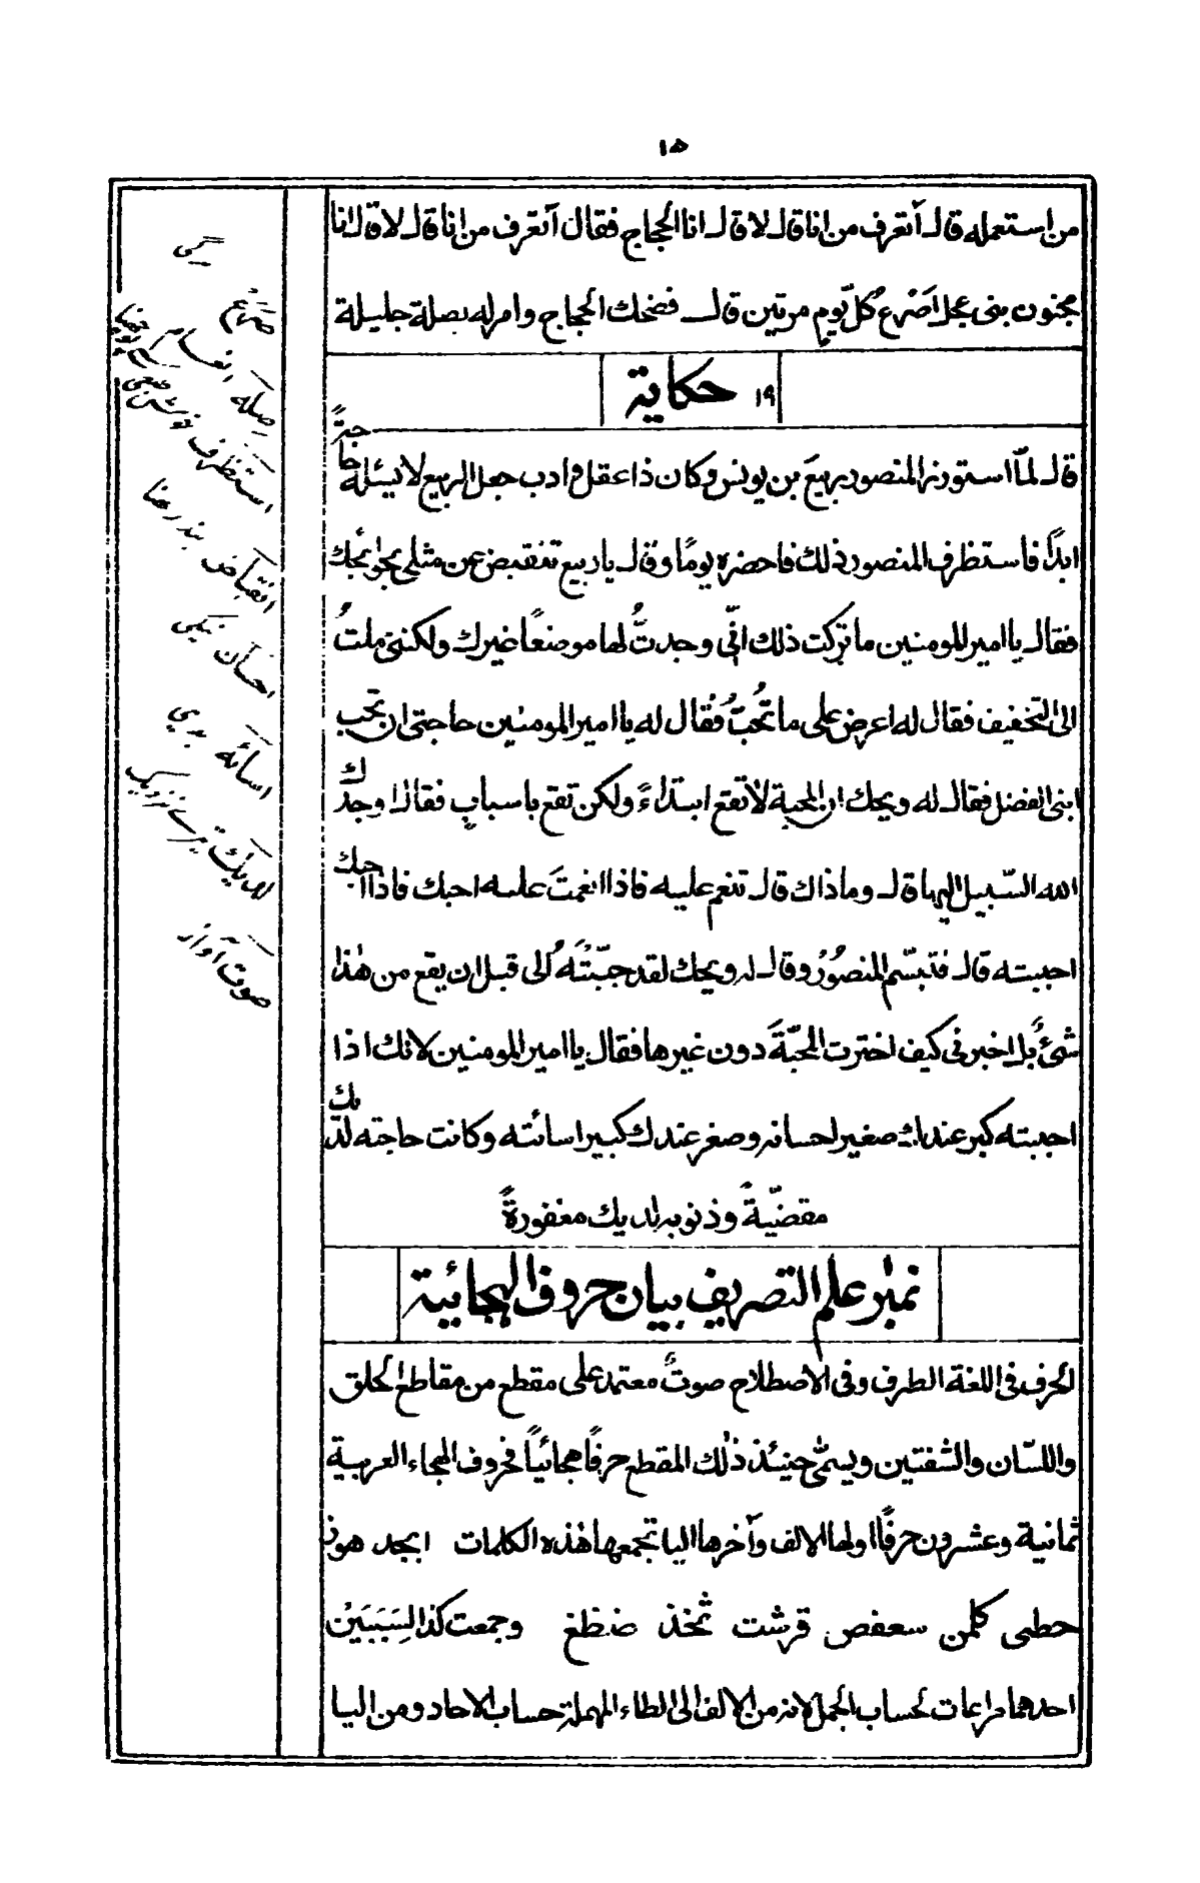 ١٥
من استعمله قال أتعرف من انا قال لا قال انا الحجاج فقال أتعرف من انا قال لا قال انا
مجنون بنى عجل اَصْرَع كُلّ يوم مرتين قال فضحك الحجاج وامر له بصلة جليلة
١٩ حكاية
قال لمّا استوزر المنصور ربيعَ بن يونس وكان ذا عقل وادب جعل الربيع لا يسئله حاجةً
ابدًا فاستظرف المنصور ذلك فاحضره يومًا وقال يا ربيع تنقبض عن مثلى بحوائجك
فقال يا امير المومنين ما تركت ذلك انّى وجدتُ لها موضعًا غيرك ولكننى ملتُ
الى التخفيف فقال له اعرض على ما تُحبّ فقال له يا امير المومنين حاجتى ان تحب
ابنى الفضل فقال له ويحك ان المحبة لا تقع ابتداءً ولكن تقع باسبابٍ فقال اوجدك
الله السّبيل اليها قال وما ذاك قال تنعم عليه فاذا انعمتَ عليه احبك فاذا احبك
احببته قال فتبسّم المنصورُ وقال له ويحك لقد حبّبْتَهُ الى قبل ان يقع من هٰذا
شئٌ بل اخبرنى كيف اخترت المحبّةَ دون غيرها فقال يا امير المومنين لانك اذا
احببته كبر عندك صغير احسانه وصغر عندك كبير اسائته وكانت حاجته لديك
مقضيّةً وذنوبه لديك مغفورةً
نمبر علم التصريف بيان حروف الهجائية
الحرف فى اللغة الطرف وفى الاصطلاح صوتٌ معتمد على مقطع من مقاطع الحلق
واللسّان والشفتين ويسمّٰى حينئذ ذٰلك المقطع حرفًا هجائيًا فحروف الهجاء العربية
ثمانية وعشرون حرفًا اولها الالف وآخرها اليا تجمعها هٰذه الكلمات ابجد هوز
حطى كلمن سعفص قرشت ثخذ ضظغ وجمعت كذا لِسَبَبَيْن
احدهما مراعات لحساب الجمل لانه من الالف الى الطاء المهملة حساب الاحاد ومن اليا
صَرَعْ
صِلَه انعام
استظرف
انقباض
احسان نيكى
اسائه بدي
لديك نزديك
صوت آواز